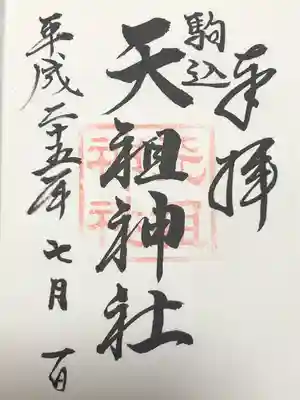 奉拝
駒込
天祖神社
平成二十五年七月一日